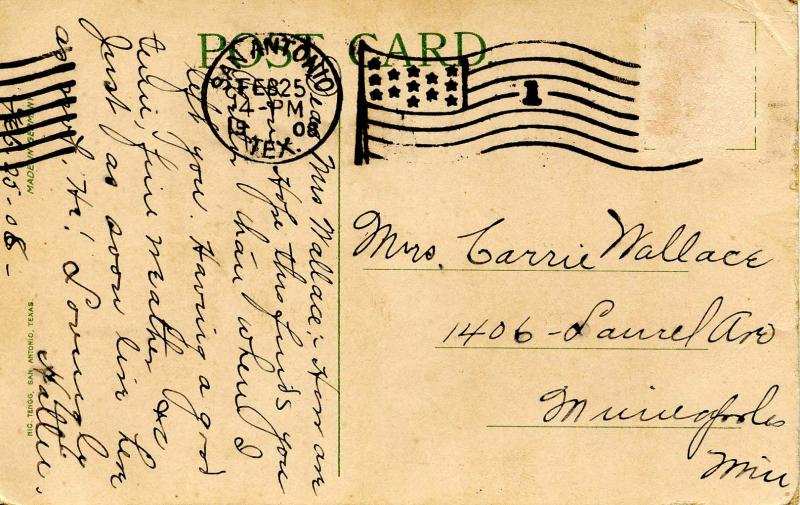 POST CARD.
SAN ANTONIO
FEB 25
4-PM
08
TEX.
1
Dear Mrs Wallace:- How are
you. Hope this finds you
better than when I
left you. Having a good
time, fine weather &c
Just as soon live here
as not. Ha! Lovingly
Hallie.
Feb-25-08-
MADE IN GERMANY
NIC. TENGG, SAN ANTONIO, TEXAS.
Mrs. Carrie Wallace
1406-Laurel Ave
Minneapolis
Minn